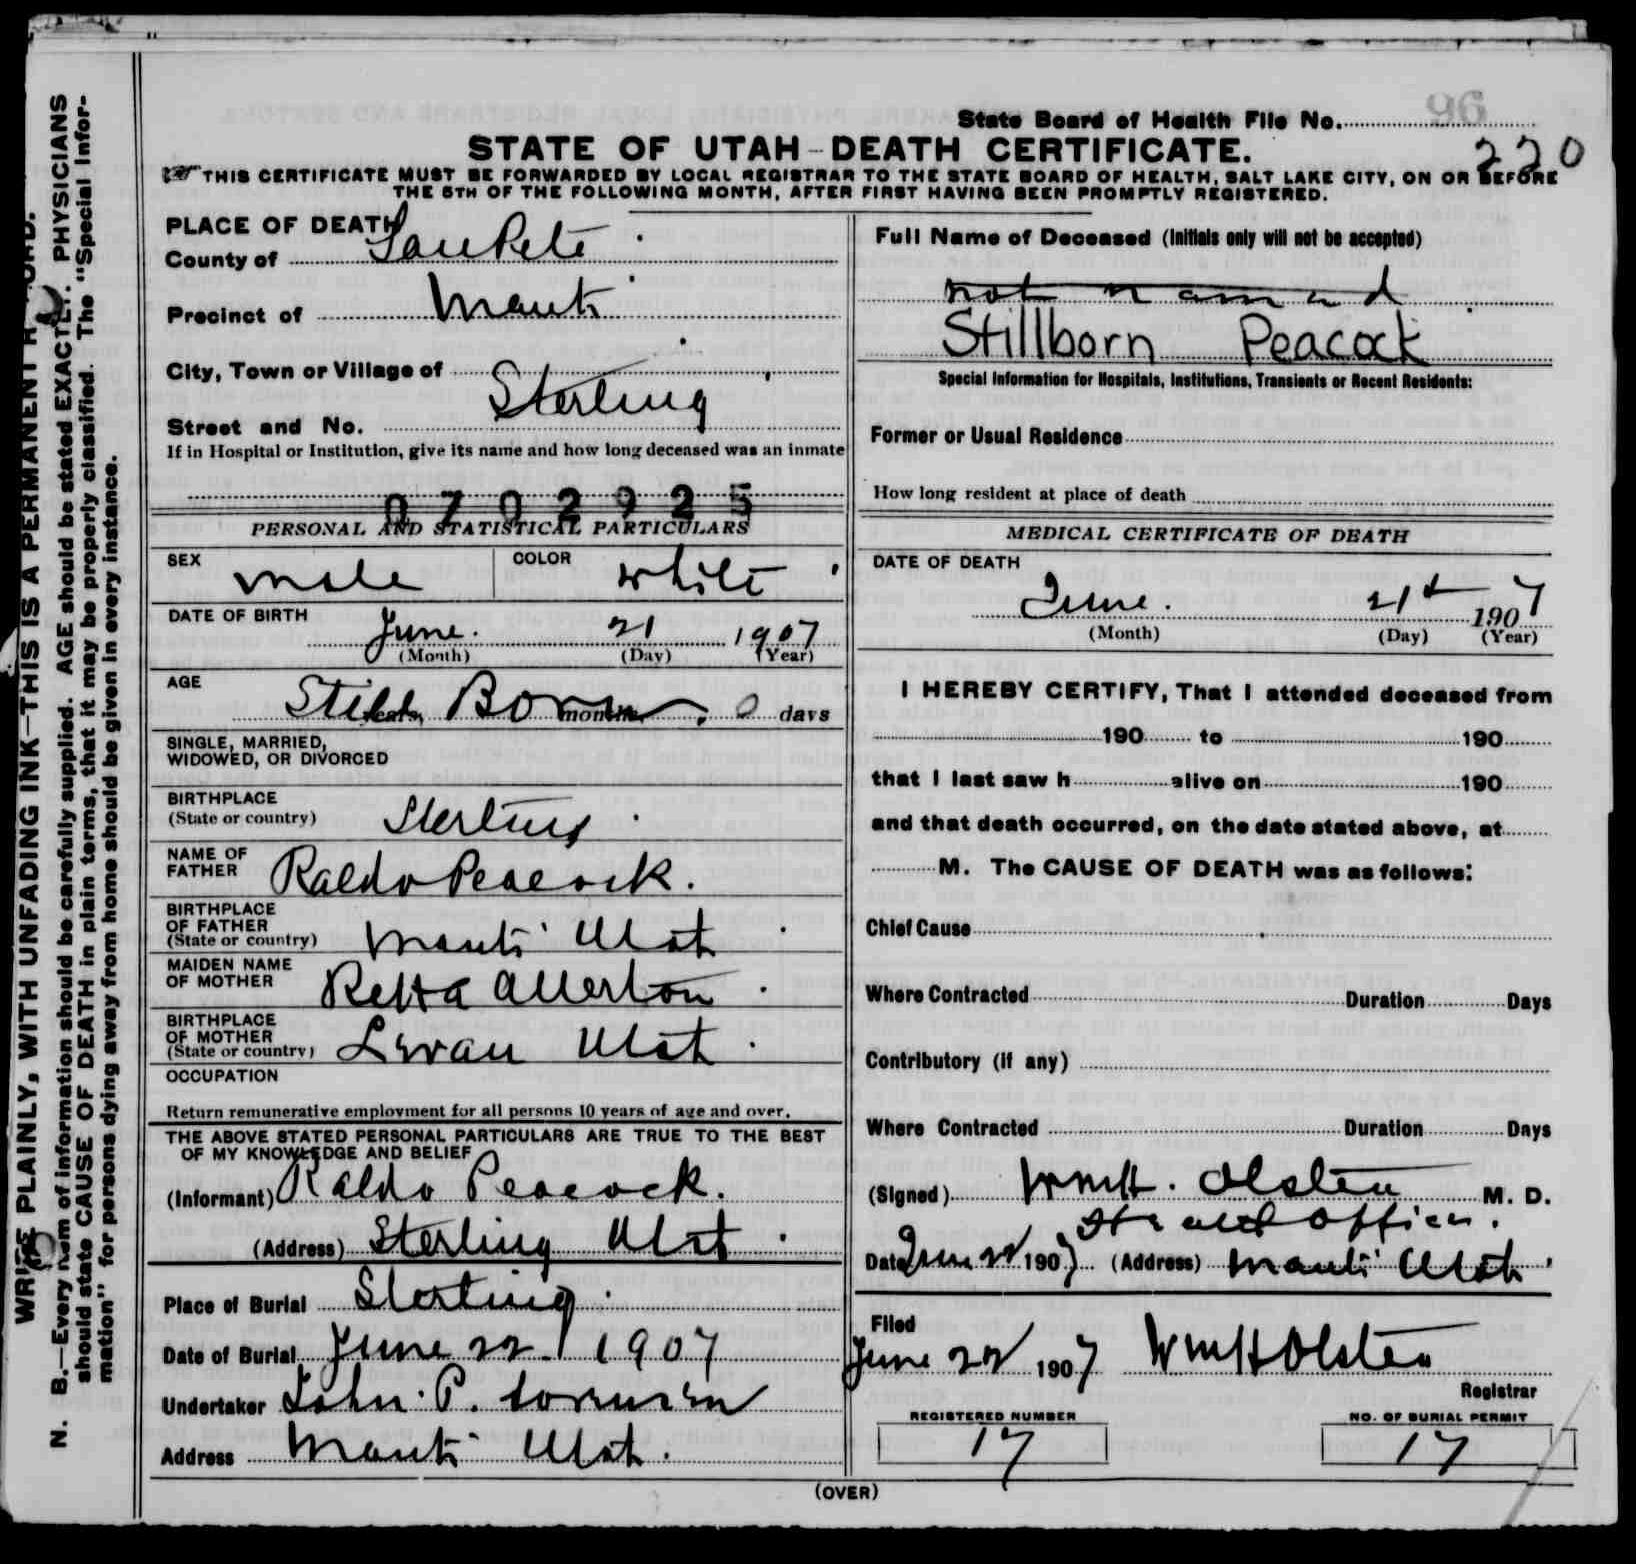 96
State Board of Health File No.
220
STATE OF UTAH–DEATH CERTIFICATE.
THIS CERTIFICATE MUST BE FORWARDED BY LOCAL REGISTRAR TO THE STATE BOARD OF HEALTH, SALT LAKE CITY, ON OR BEFORE
THE 5TH OF THE FOLLOWING MONTH, AFTER FIRST HAVING BEEN PROMPTLY REGISTERED.
PLACE OF DEATH
County of SanPete
Precinct of Manti
City, Town or Village of
Sterling
Street and No.
If in Hospital or Institution, give its name and how long deceased was an inmate
0702925
PERSONAL AND STATISTICAL PARTICULARS
SEX male COLOR white
DATE OF BIRTH
June. 21 1907
(Month) (Day) (Year)
AGE
Still Born years, months, 0 days
SINGLE, MARRIED,
WIDOWED, OR DIVORCED
BIRTHPLACE
(State or country) Sterling
NAME OF
FATHER Raldo Peacock.
BIRTHPLACE
OF FATHER
(State or country) Manti Utah
MAIDEN NAME
OF MOTHER Retta Allerton
BIRTHPLACE
OF MOTHER
(State or country) Levan Utah
OCCUPATION
Return remunerative employment for all persons 10 years of age and over.
THE ABOVE STATED PERSONAL PARTICULARS ARE TRUE TO THE BEST
OF MY KNOWLEDGE AND BELIEF
(Informant) Raldo Peacock.
(Address) Sterling Utah
Place of Burial Sterling
Date of Burial June 22 1907
Undertaker John P. Sorensen
Address Manti Utah.
Full Name of Deceased (Initials only will not be accepted)
not named
Stillborn Peacock
Special Information for Hospitals, Institutions, Transients or Recent Residents:
Former or Usual Residence
How long resident at place of death
MEDICAL CERTIFICATE OF DEATH
DATE OF DEATH
June. 21st 1907
(Month) (Day) (Year)
I HEREBY CERTIFY, That I attended deceased from
190 to 190
that I last saw h alive on 190
and that death occurred, on the date stated above, at
M. The CAUSE OF DEATH was as follows:
Chief Cause
Where Contracted Duration Days
Contributory (if any)
Where Contracted Duration Days
(Signed) WmH. Olsten M. D.
Health Officer.
Date June 22 1907 (Address) Manti Utah
Filed
June 22 1907 WmH Olsten
Registrar
REGISTERED NUMBER
17
NO. OF BURIAL PERMIT
17
(OVER)
WRITE PLAINLY, WITH UNFADING INK—THIS IS A PERMANENT RECORD.
N. B.—Every item of information should be carefully supplied. AGE should be stated EXACTLY. PHYSICIANS
should state CAUSE OF DEATH in plain terms, that it may be properly classified. The "Special Infor-
mation" for persons dying away from home should be given in every instance.